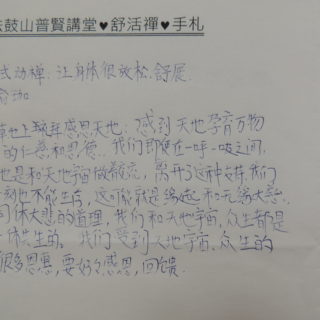 法鼓山普賢講堂♥舒活禪♥手札
式动禅: 让身体很放松,舒展.
瑜珈
地上躺 感恩天地: 感到 天地孕育万物
的仁慈和恩德.. 我们即使在一呼一吸之间,
也是和天地宇宙做交流, 离开了这种支持,我们
刻也不能生存, 这可能就是缘起和无缘大慈..
同体大悲的道理, 我们和天地宇宙,众生都是
一体共生的. 我们受到天地宇宙、众生的
很多恩惠,要好好感恩,回馈.